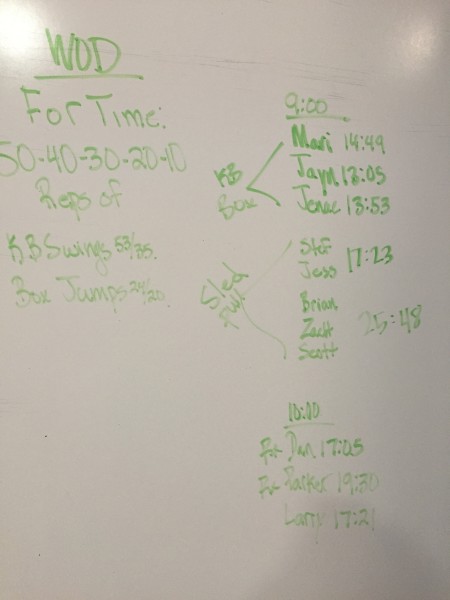 WOD
For Time:
50-40-30-20-10
Reps of
KB Swings 53/35.
Box Jumps 24/20.
9:00
KB
Box
Mari 14:49
Jayn 13:05
Jenae 13:53
Sled
Stef
Jess 17:23
Brian
Zach 25:48
Scott
10:00
Dan 17:05
Parker 19:30
Larry 17:21